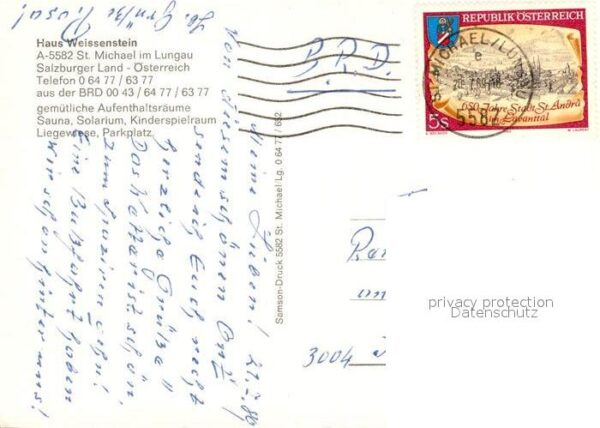 Lb. Grüße Rosa!
Haus Weissenstein
A-5582 St. Michael im Lungau
Salzburger Land - Österreich
Telefon 0 64 77 / 63 77
aus der BRD 00 43 / 64 77 / 63 77
gemütliche Aufenthaltsräume
Sauna, Solarium, Kinderspielraum
Liegewiese, Parkplatz.
Meine Lieben!
Von diesem schönen Ort
sende ich Euch recht
herzliche Grüße
Das Wetter ist schön
zum Spazieren gehn!
Eine Busfahrt haben
wir schon hinter uns!
Samson-Druck 5582 St. Michael/Lg. 0 64 77 / 652
B.R.D.
REPUBLIK ÖSTERREICH
650 Jahre Stadt St. Andrä
im Lavanttal
5s
ST. MICHAEL/LUNGAU
5582
3004
privacy protection
Datenschutz